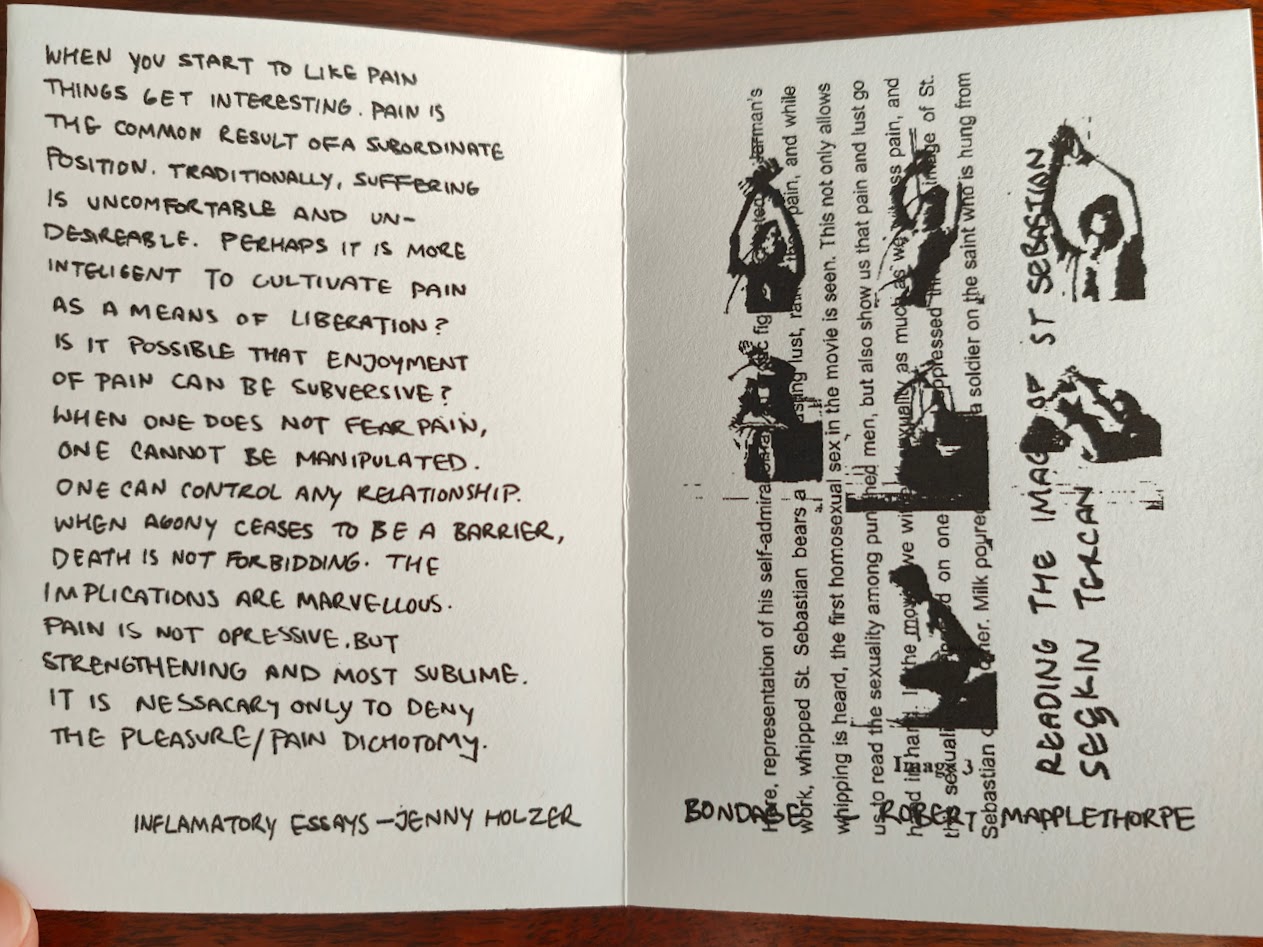 WHEN YOU START TO LIKE PAIN
THINGS GET INTERESTING. PAIN IS
THE COMMON RESULT OF A SUBORDINATE
POSITION. TRADITIONALLY, SUFFERING
IS UNCOMFORTABLE AND UN-
DESIREABLE. PERHAPS IT IS MORE
INTELIGENT TO CULTIVATE PAIN
AS A MEANS OF LIBERATION?
IS IT POSSIBLE THAT ENJOYMENT
OF PAIN CAN BE SUBVERSIVE?
WHEN ONE DOES NOT FEAR PAIN,
ONE CANNOT BE MANIPULATED.
ONE CAN CONTROL ANY RELATIONSHIP.
WHEN AGONY CEASES TO BE A BARRIER,
DEATH IS NOT FORBIDDING. THE
IMPLICATIONS ARE MARVELLOUS.
PAIN IS NOT OPRESSIVE. BUT
STRENGTHENING AND MOST SUBLIME.
IT IS NESSACARY ONLY TO DENY
THE PLEASURE/PAIN DICHOTOMY.
INFLAMATORY ESSAYS - JENNY HOLZER
Here, representation of his self-admira fig Jarman's
work, whipped St. Sebastian bears a lust, pain, and while
whipping is heard, the first homosexual sex in the movie is seen. This not only allows
us to read the sexuality among punished men, but also show us that pain and lust go
hand in hand. the movie, we as much as we pain, and
on one image of St.
Sebastian Milk poured a soldier on the saint who is hung from
Image 3
READING THE IMAGE OF ST SEBASTIAN
SEÇKIN TERCAN
BONDAGE ROBERT MAPPLETHORPE